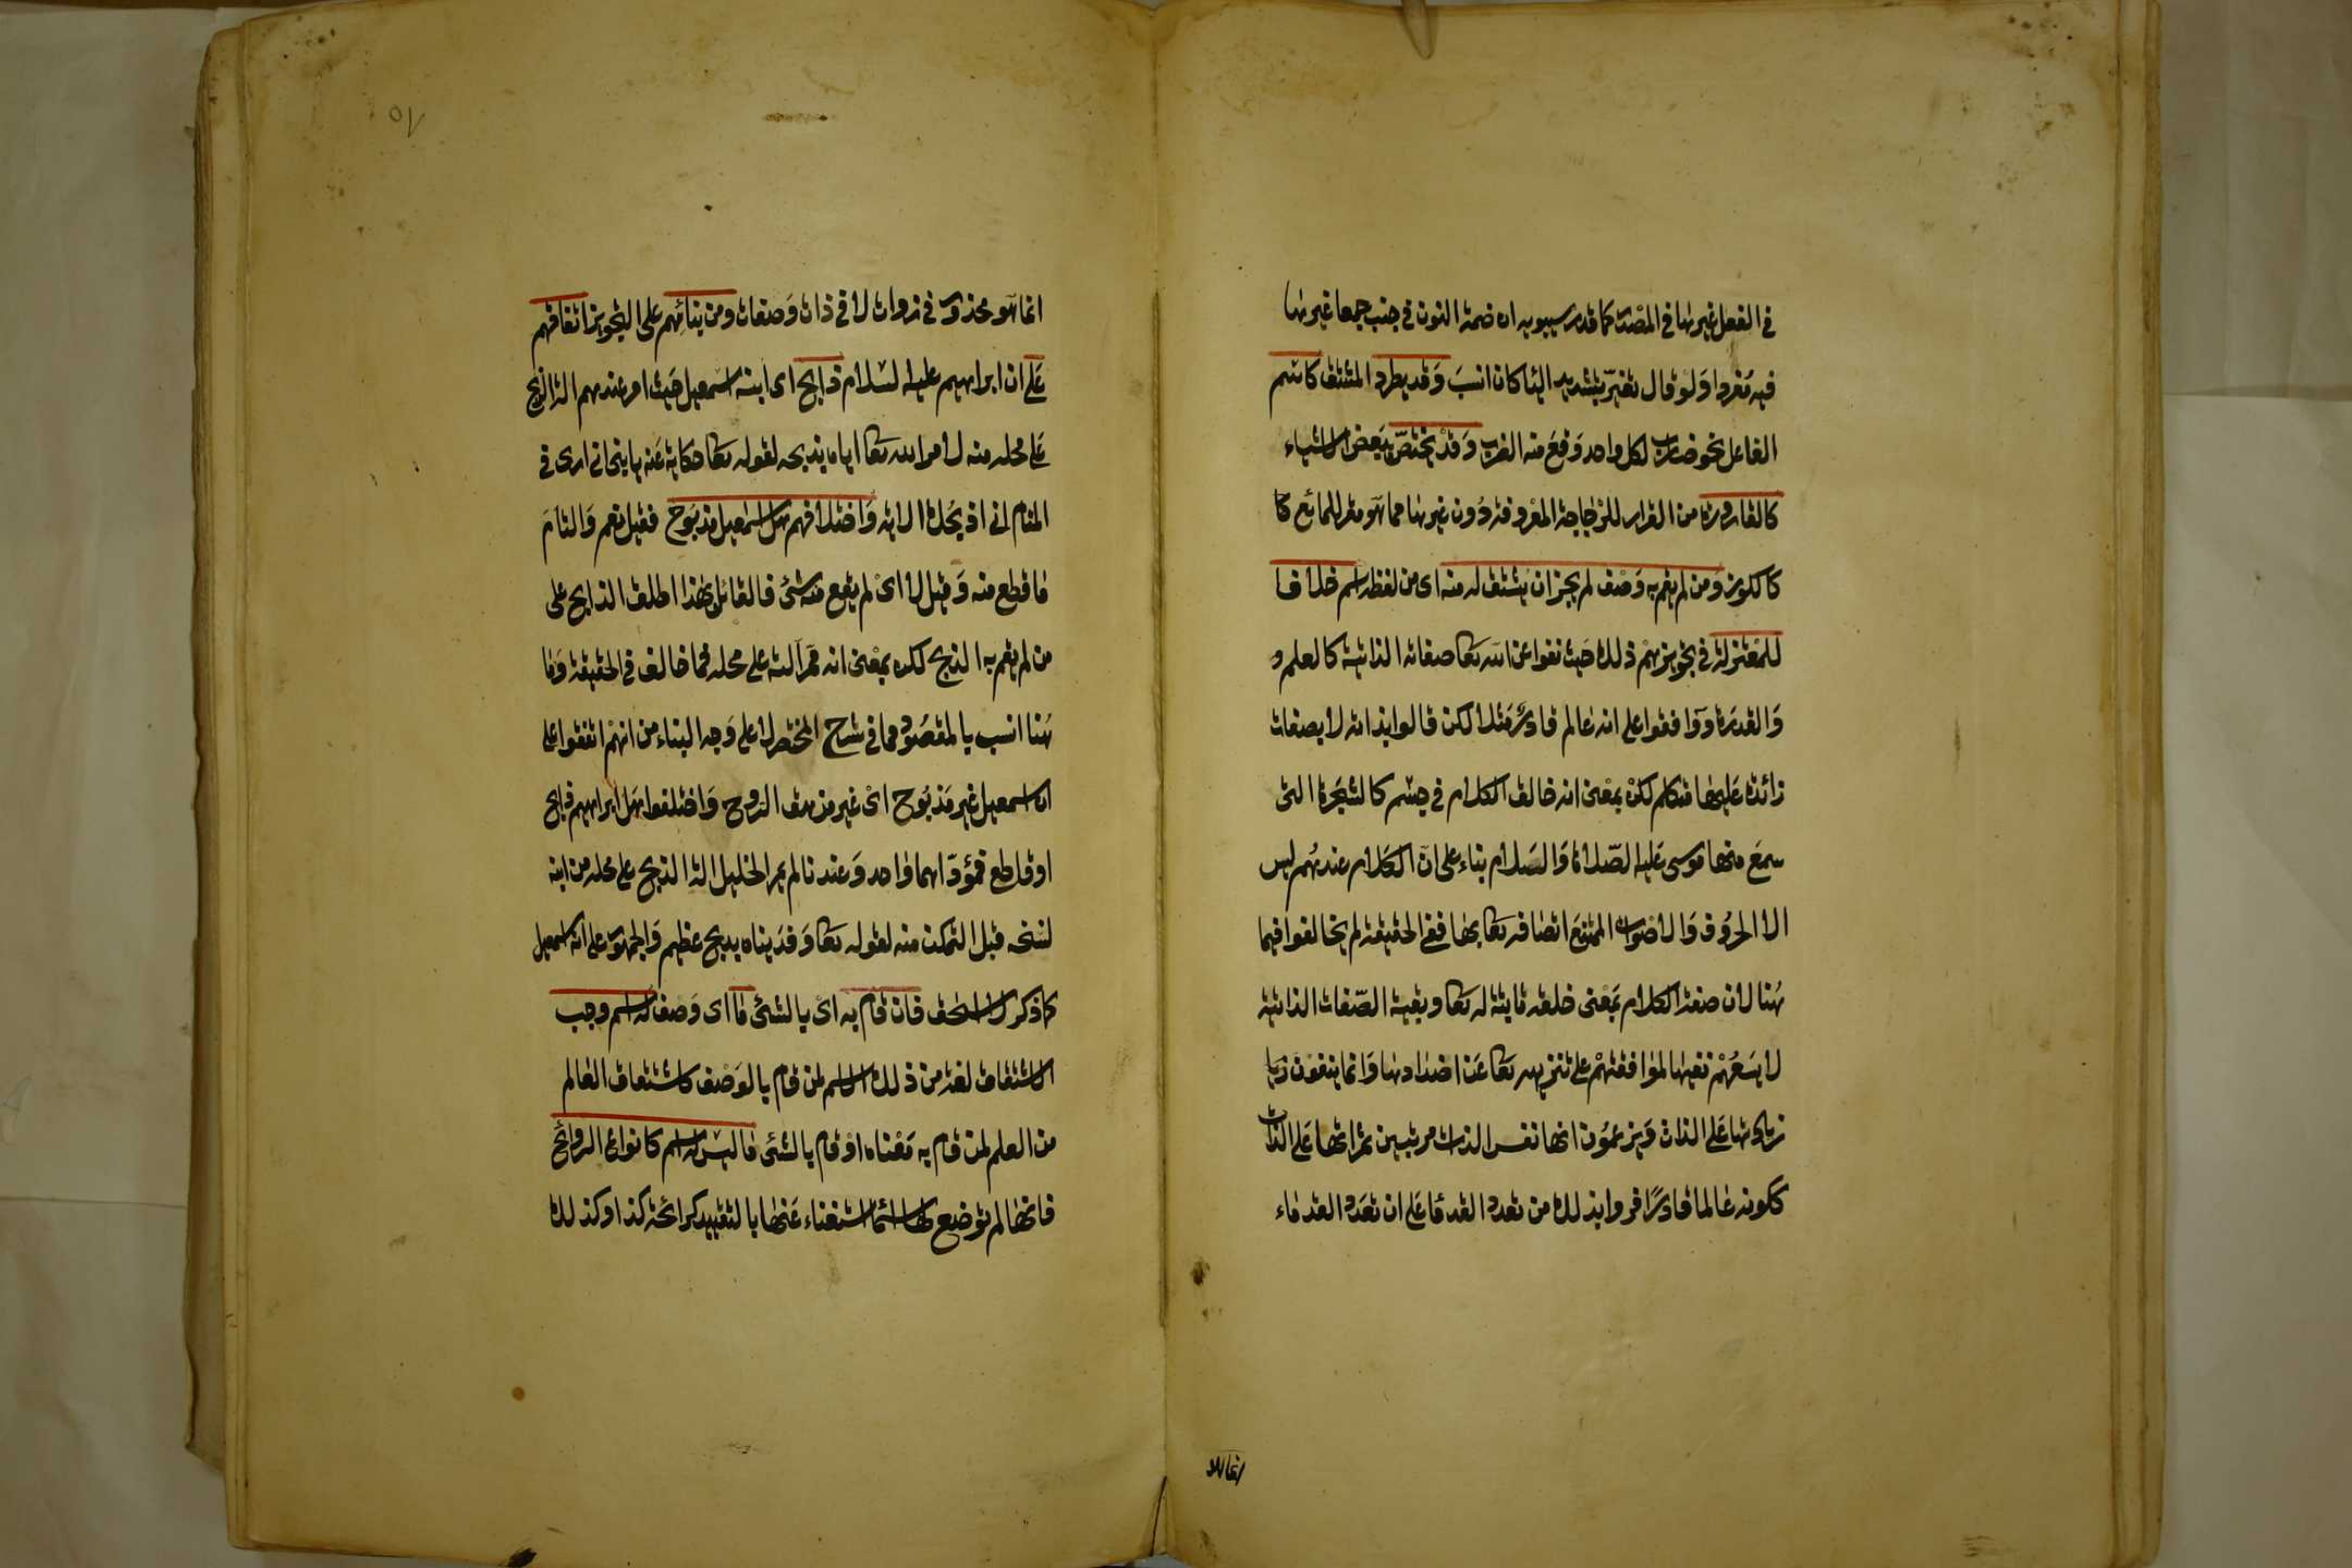 في الفعل غيرها في المصدر كما قدر سيبويه ان ضمة النون في جنب جمعا غيرها
فيه مفردا ولو قال تغير بتشديد اليا كان انسب وقد يطرد المشتق كاسم
الفاعل نحو ضارب لكل واحد وقع منه الضرب وقد يختص ببعض الاشياء
كالقارورة من القرار للزجاجة المعروفة دون غيرها مما هو مقر للمائع كا
كالكوز ومن لم يقم به وصف لم يجز ان يشتق له منه اى من لفظه اسم خلافا
للمعتزلة في تجويزهم ذلك حيث نفوا عن الله تعا صفاته الذاتية كالعلم و
والقدرة ووافقوا على انه عالم قادر مثلا لكن قالوا بذاته لا بصفات
زائدة عليها متكلم لكن بمعنى انه خالق الكلام في جسم كالشجرة التى
سمع منها موسى عليه الصلاة والسلام بناء على ان الكلام عندهم ليس
الا الحروف والاصوات الممتنع اتصافه تعا بها ففي الحقيقة لم يخالفوا فيما
هنا لان صفة الكلام بمعنى خلقه ثابتة له تعا وبقية الصفات الذاتية
لا يسعهم نفيها لموافقتهم على تنزيهه تعا عن اضدادها وانما ينفون زيا
زيادتها على الذات ويزعمون انها نفس الذات مرتبين ثمراتها على الذات
ككونه عالما قادرا فروا بذلك من تعدد القدما على ان تعدد القدماء
انما هو
انما هو محذور في ذوات لا في ذات وصفات ومن بنائهم على التجويز اتفاقهم
على ان ابراهيم عليه السلام ذابح اى ابنه اسمعيل حيث امر عندهم الة الذبح
على محله منه لامر الله تعا اياه بذبحه لقوله تعا حكاية عنه يا بني انى ارى في
المنام انى اذبحك الاية واختلافهم هل اسمعيل مذبوح فقيل نعم والتام
ما قطع منه وقيل لا اى لم يقع منه شئ فالقائل بهذا اطلق الذابح على
من لم يقم به الذبح لكن بمعنى انه ممر آلته على محله فما خالف في الحقيقة وما
هنا انسب بالمقصود مما في شرح المختصر لا على وجه البناء من انهم اتفقوا على
ان اسمعيل غير مذبوح اى غير مزهق الروح واختلفوا هل ابراهيم ذابح
او قاطع فمؤداهما واحد وعندنا لم يمر الخليل الة الذبح على محله من ابنه
لنسخه قبل التمكن منه لقوله تعا وفديناه بذبح عظيم والجمهور على انه اسمعيل
كما ذكر لا اسحق فان قام به اى بالشئ ما اى وصف له اسم وجب
الاشتقاق لغة من ذلك الاسم لمن قام بالوصف كاشتقاق العالم
من العلم لمن قام به معناه او قام بالشئ ما ليس له اسم كانواع الروائح
فانها لم توضع لها اسماء استغناء عنها بالتقييد كرائحة كذا وكذلك